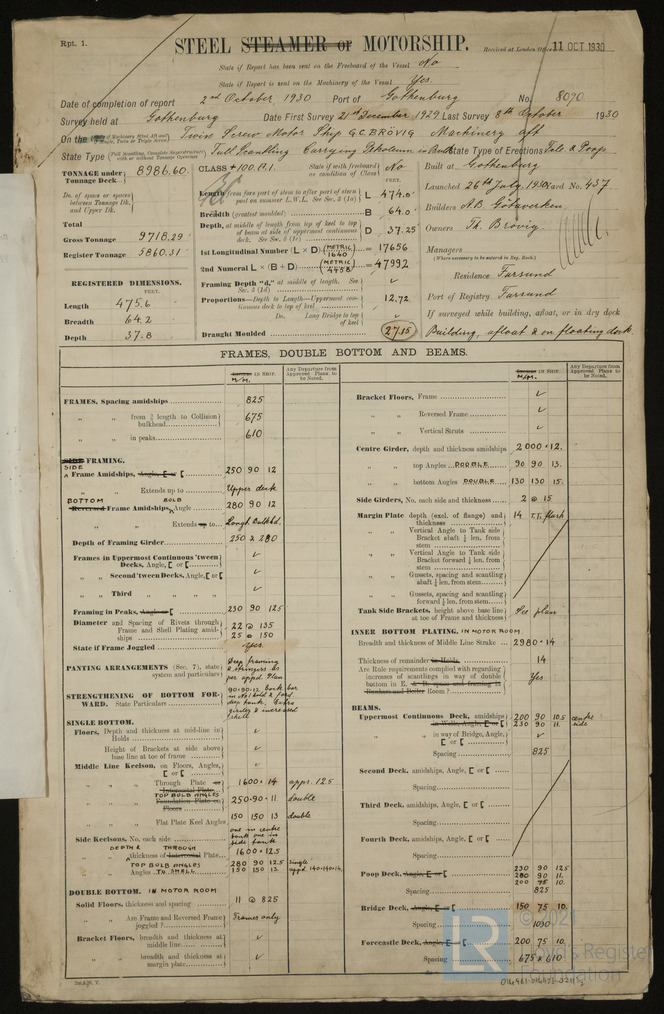 Rpt. 1.
STEEL STEAMER or MOTORSHIP.
Received at London Office 11 OCT 1930
State if Report has been sent on the Freeboard of the Vessel No
State if Report is sent on the Machinery of the Vessel Yes.
Date of completion of report 2nd October 1930 Port of Gothenburg No. 8090
Survey held at Gothenburg Date First Survey 21st December 1929 Last Survey 8th October 1930
On the Twin Screw Motor Ship G.C. BRÖVIG Machinery aft
State Type Full Scantling Carrying Petroleum in Bulk State Type of Erections Fo'c & Poop
TONNAGE under Tonnage Deck 8986.60
Do. of space or spaces between Tonnage Dk. and Upper Dk.
Total
Gross Tonnage 9718.29
Register Tonnage 5860.31
REGISTERED DIMENSIONS.
FEET.
Length 475.6
Breadth 64.2
Depth 37.8
CLASS +100.A1. State if with freeboard as condition of Class No
FEET.
Length from fore part of stem to after part of stern post on summer L.W.L. See Sec. 3 (1a) L 474.0
Breadth (greatest moulded) B 64.0
Depth, at middle of length from top of keel to top of beam at side of uppermost continuous deck. See Sec. 3 (1c) D 37.25
1st Longitudinal Number (L × D) (METRIC 1640) = 17656
2nd Numeral L × (B + D) (METRIC 4458) = 47992
Framing Depth "d," at middle of length. See Sec. 3 (1d)
Proportions—Depth to Length—Uppermost continuous deck to top of keel 12.72
Do. Long Bridge to top of keel
Draught Moulded 27.15
Built at Gothenburg
Launched 26th July 1930 Yard No. 437
Builders A.B. Götaverken
Owners Th. Brövig
Managers
(Where necessary to be entered in Reg. Book.)
Residence Farsund
Port of Registry Farsund
If surveyed while building, afloat, or in dry dock
Building, afloat & on floating dock
FRAMES, DOUBLE BOTTOM AND BEAMS.
IN SHIP. M/M.
Any Departure from Approved Plans to be Noted.
FRAMES, Spacing amidships 825
" " from ⅗ length to Collision bulkhead 675
" " in peaks 610
SIDE FRAMING.
Frame Amidships, Angle, [ or [ 250 90 12
" " Extends up to Upper deck
BOTTOM Reversed Frame Amidships, BULB Angle 280 90 12
" " Extends up to Longl Bulkhd.
Depth of Framing Girder 250 x 280
Frames in Uppermost Continuous 'tween Decks, Angle, [ or [
" Second 'tween Decks, Angle, [ or [
" Third " "
Framing in Peaks, Angle or [ 230 90 12.5
Diameter and Spacing of Rivets through Frame and Shell Plating amidships 22 @ 135
25 @ 150
State if Frame Joggled Yes.
PANTING ARRANGEMENTS (Sec. 7), state system and particulars Deep framing & stringers as per appd. plan
STRENGTHENING OF BOTTOM FORWARD. State Particulars
SINGLE BOTTOM.
Floors, Depth and thickness at mid-line in Holds
Height of Brackets at side above base line at toe of frame
Middle Line Keelson, on Floors, Angles, [ or [
" " Through Plate or Intercostal Plate 1600 x 14 appr. 12.5
" " TOP BULB ANGLES Foundation Plate on Floors 250-90-11 double
" " Flat Plate Keel Angles 150 150 13 double
Side Keelsons, No. each side one in centre tank one in side tank
" " DEPTH & thickness of THROUGH Intercostal Plate 1600 x 12.5
TOP BULB ANGLES 280 90 12.5 single
" " Angles TO SHELL 150 150 13 appd. 140-140-14
DOUBLE BOTTOM. IN MOTOR ROOM
Solid Floors, thickness and spacing 11 @ 825
" " Are Frame and Reversed Frame joggled? Frames only
Bracket Floors, breadth and thickness at middle line
" " breadth and thickness at margin plate
Bracket Floors, Frame
" " Reversed Frame
" " Vertical Struts
Centre Girder, depth and thickness amidships 2000 x 12.
" " top Angles DOUBLE 90 90 13.
" " bottom Angles DOUBLE 130 130 15.
Side Girders, No. each side and thickness 2 @ 15
Margin Plate depth (excl. of flange) and thickness 14 T.T. flush
" " Vertical Angle to Tank side Bracket abaft ¼ len. from stem
" " Vertical Angle to Tank side Bracket forward ¼ len. from stem
" " Gussets, spacing and scantling abaft ¼ len. from stem
" " Gussets, spacing and scantling forward ¼ len. from stem
Tank Side Brackets, height above base line at toe of Frame and thickness See plan
INNER BOTTOM PLATING. IN MOTOR ROOM
Breadth and thickness of Middle Line Strake 2980 x 14
Thickness of remainder in Holds 14
Are Rule requirements complied with regarding increases of scantlings in way of double bottom in E. & B. space and framing in Bunkers and Boiler Room? Yes
BEAMS.
Uppermost Continuous Deck, amidships 200 90 10.5 centre
in Wells, Angle, [ or [ 230 90 11. side
" " in way of Bridge, Angle, [ or [
Spacing 825
Second Deck, amidships, Angle, [ or [
Spacing
Third Deck, amidships, Angle, [ or [
Spacing
Fourth Deck, amidships, Angle, [ or [
Spacing
Poop Deck, Angle, [ or [ 230 90 12.5
280 90 11.
200 75 10.
Spacing 825
Bridge Deck, Angle, [ or [ 150 75 10.
Spacing
Forecastle Deck, Angle, [ or [ 200 75 10.
Spacing 675 x 610
LR
© 2021
Lloyd's Register
Foundation